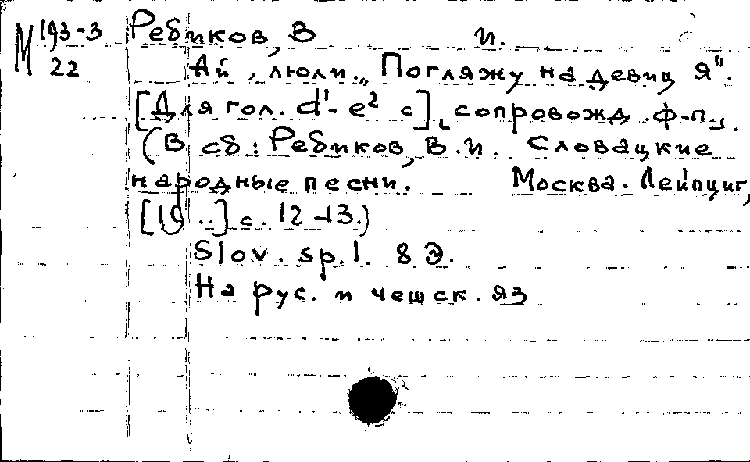 М 193-3
22
Ребиков, В. И.
Ай, люли „Погляжу на девиц я".
[Для гол. d¹-e² с] сопровожд. ф-п.
(В сб: Ребиков, В.И. Словацкие
народные песни. Москва. Лейпциг,
[19..] с. 12-13.)
Slov. sp. l. 8 Э.
На рус. и чешск. яз